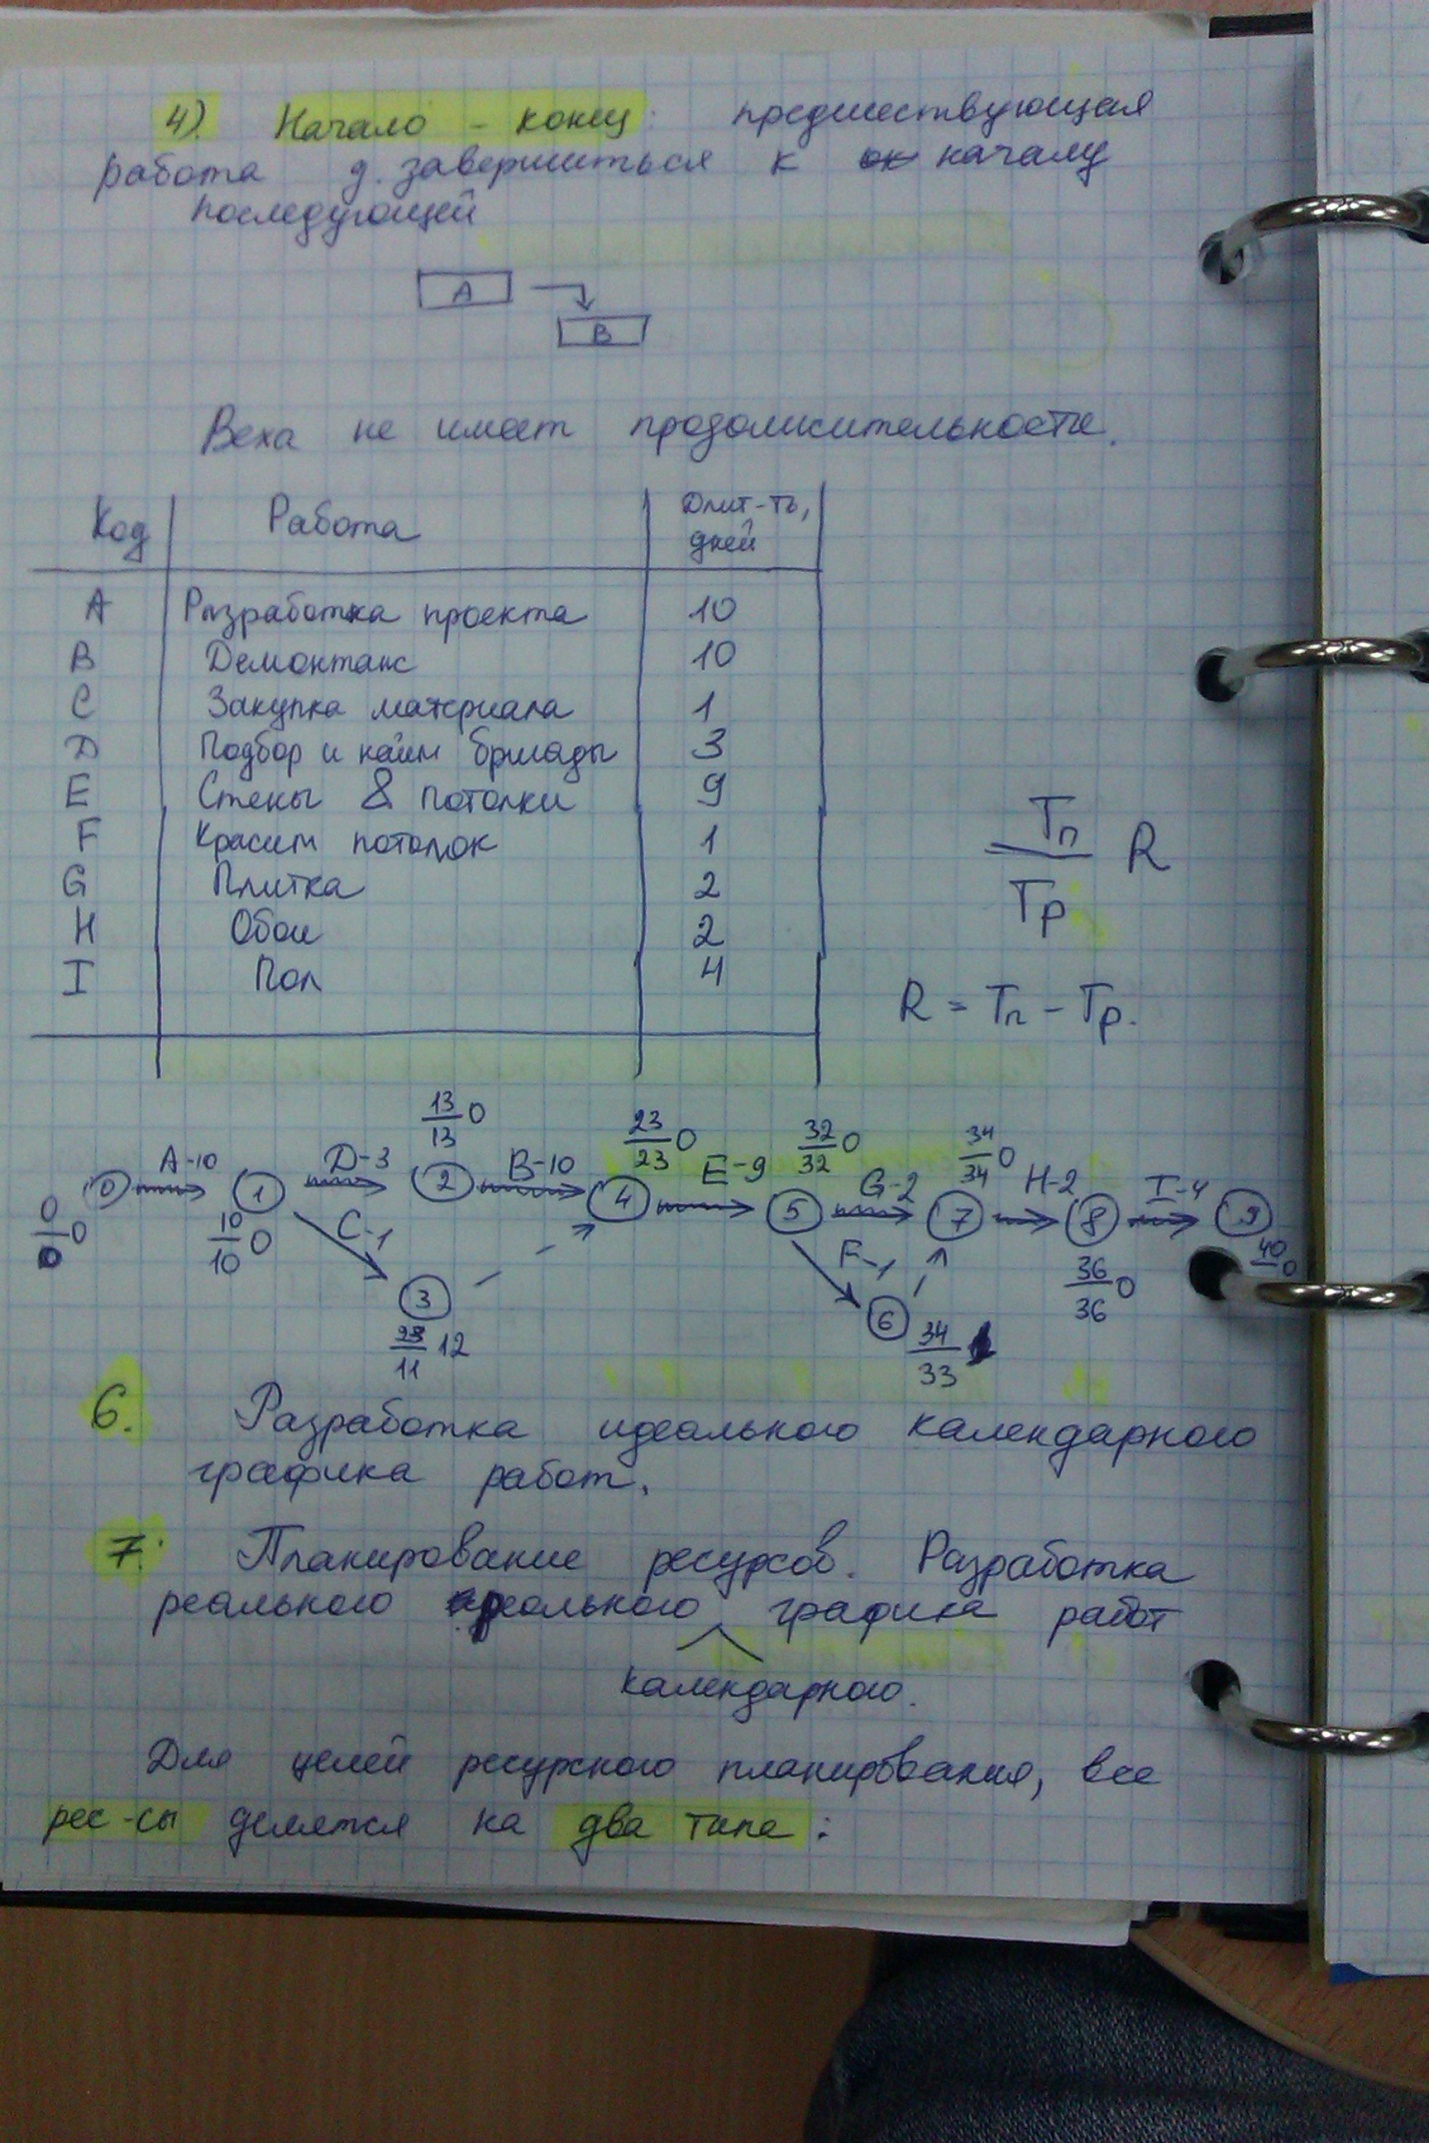 4). Начало - конец: предшествующая
работа д. завершиться к началу
последующей
A
B
Веха не имеет продолжительности.
Код Работа Длит-ть, дней
A Разработка проекта 10
B Демонтаж 10
C Закупка материала 1
D Подбор и найм бригады 3
E Стены & потолки 9
F Красим потолок 1
G Плитка 2
H Обои 2
I Пол 4
Тп
Тр
R
R = Тп - Тр.
13/13 0 23/23 0 32/32 0 34/34 0
0 A-10 1 D-3 2 B-10 4 E-9 5 G-2 7 H-2 8 I-4 9
0/0 0 10/10 0 C-1 F-1 36/36 0 40 0
3 6
23/11 12 34/33 1
6. Разработка идеального календарного
графика работ.
7. Планирование ресурсов. Разработка
реального графика работ
календарного.
Для целей ресурсного планирования, все
рес-сы делятся на два типа: